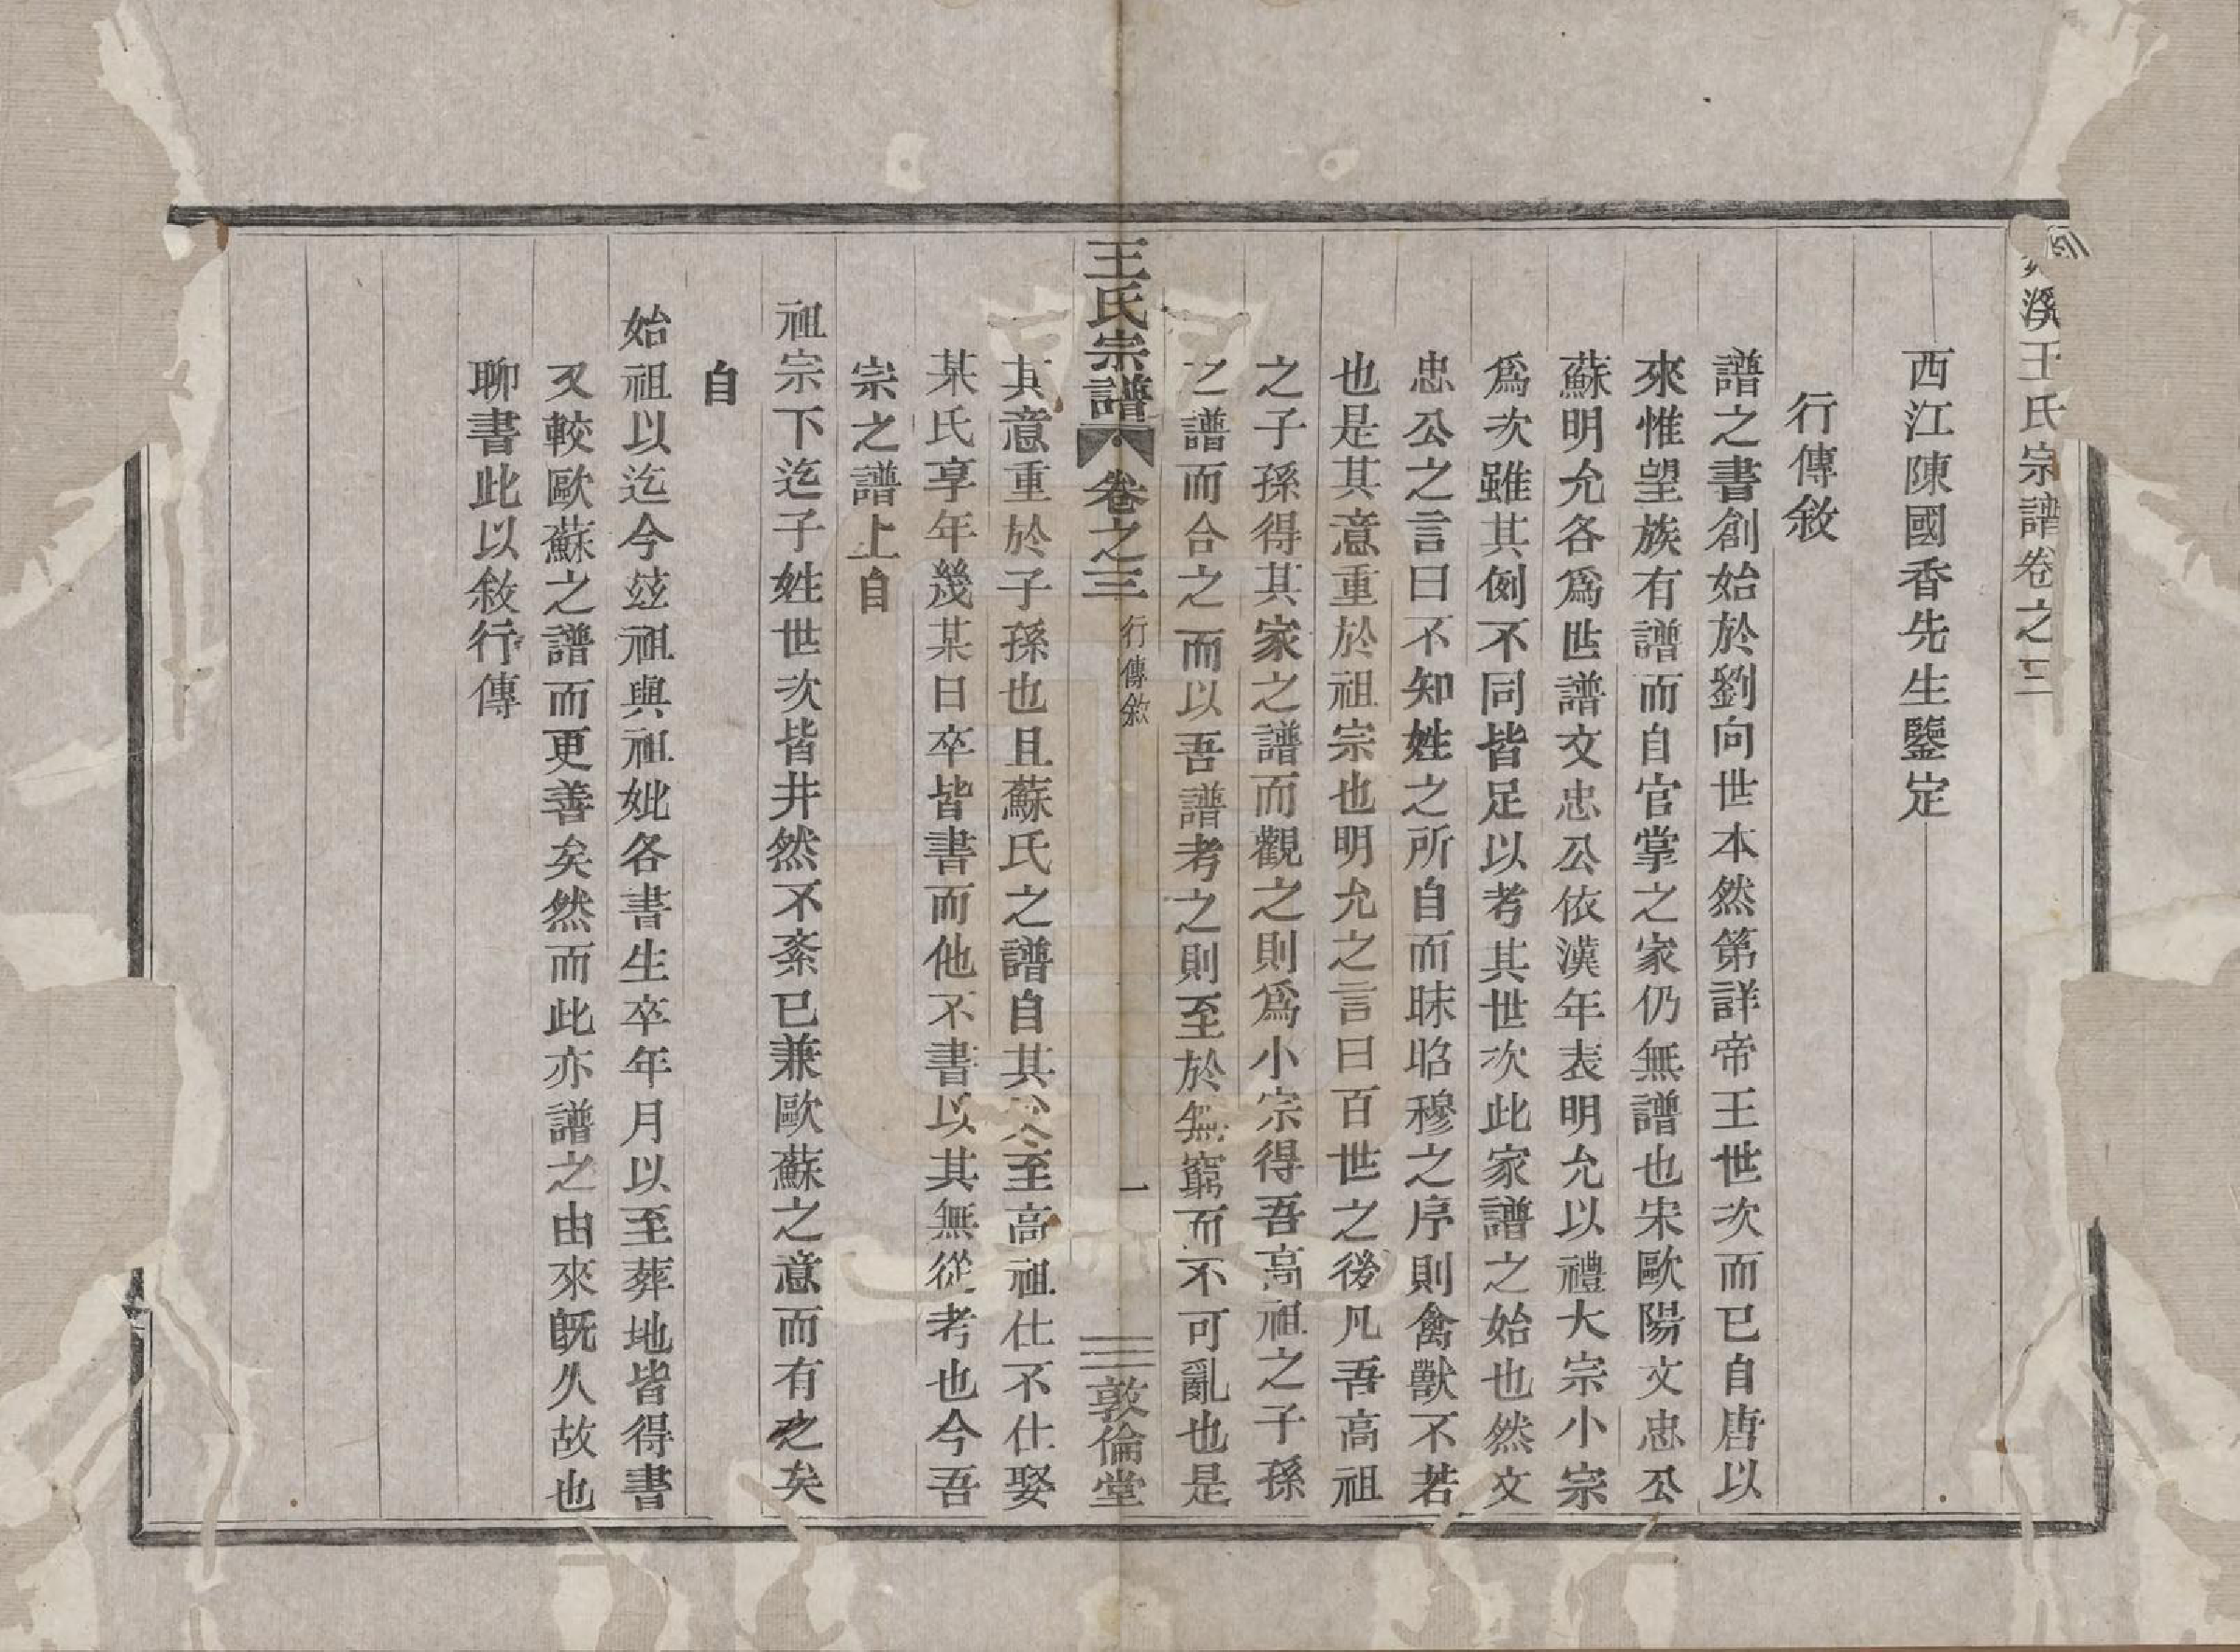 溪王氏宗譜卷之三
西江陳國香先生鑒定
行傳敘
譜之書創始於劉向世本然第詳帝王世次而已自唐以
來惟望族有譜而自官掌之家仍無譜也宋歐陽文忠公
蘇明允各爲世譜文忠公依漢年表明允以禮大宗小宗
爲次雖其例不同皆足以考其世次此家譜之始也然文
忠公之言曰不知姓之所自而昧昭穆之序則禽獸不若
也是其意重於祖宗也明允之言曰百世之後凡吾高祖
之子孫得其家之譜而觀之則爲小宗得吾高祖之子孫
之譜而合之而以吾譜考之則至於無窮而不可亂也是
王氏宗譜 卷之三 行傳敘 一 敦倫堂
其意重於子孫也且蘇氏之譜自其父至高祖仕不仕娶
某氏享年幾某日卒皆書而他不書以其無從考也今吾
宗之譜上自
祖宗下迄子姓世次皆井然不紊已兼歐蘇之意而有之矣
自
始祖以迄今玆祖與祖妣各書生卒年月以至葬地皆得書
又較歐蘇之譜而更善矣然而此亦譜之由來旣久故也
聊書此以敘行傳